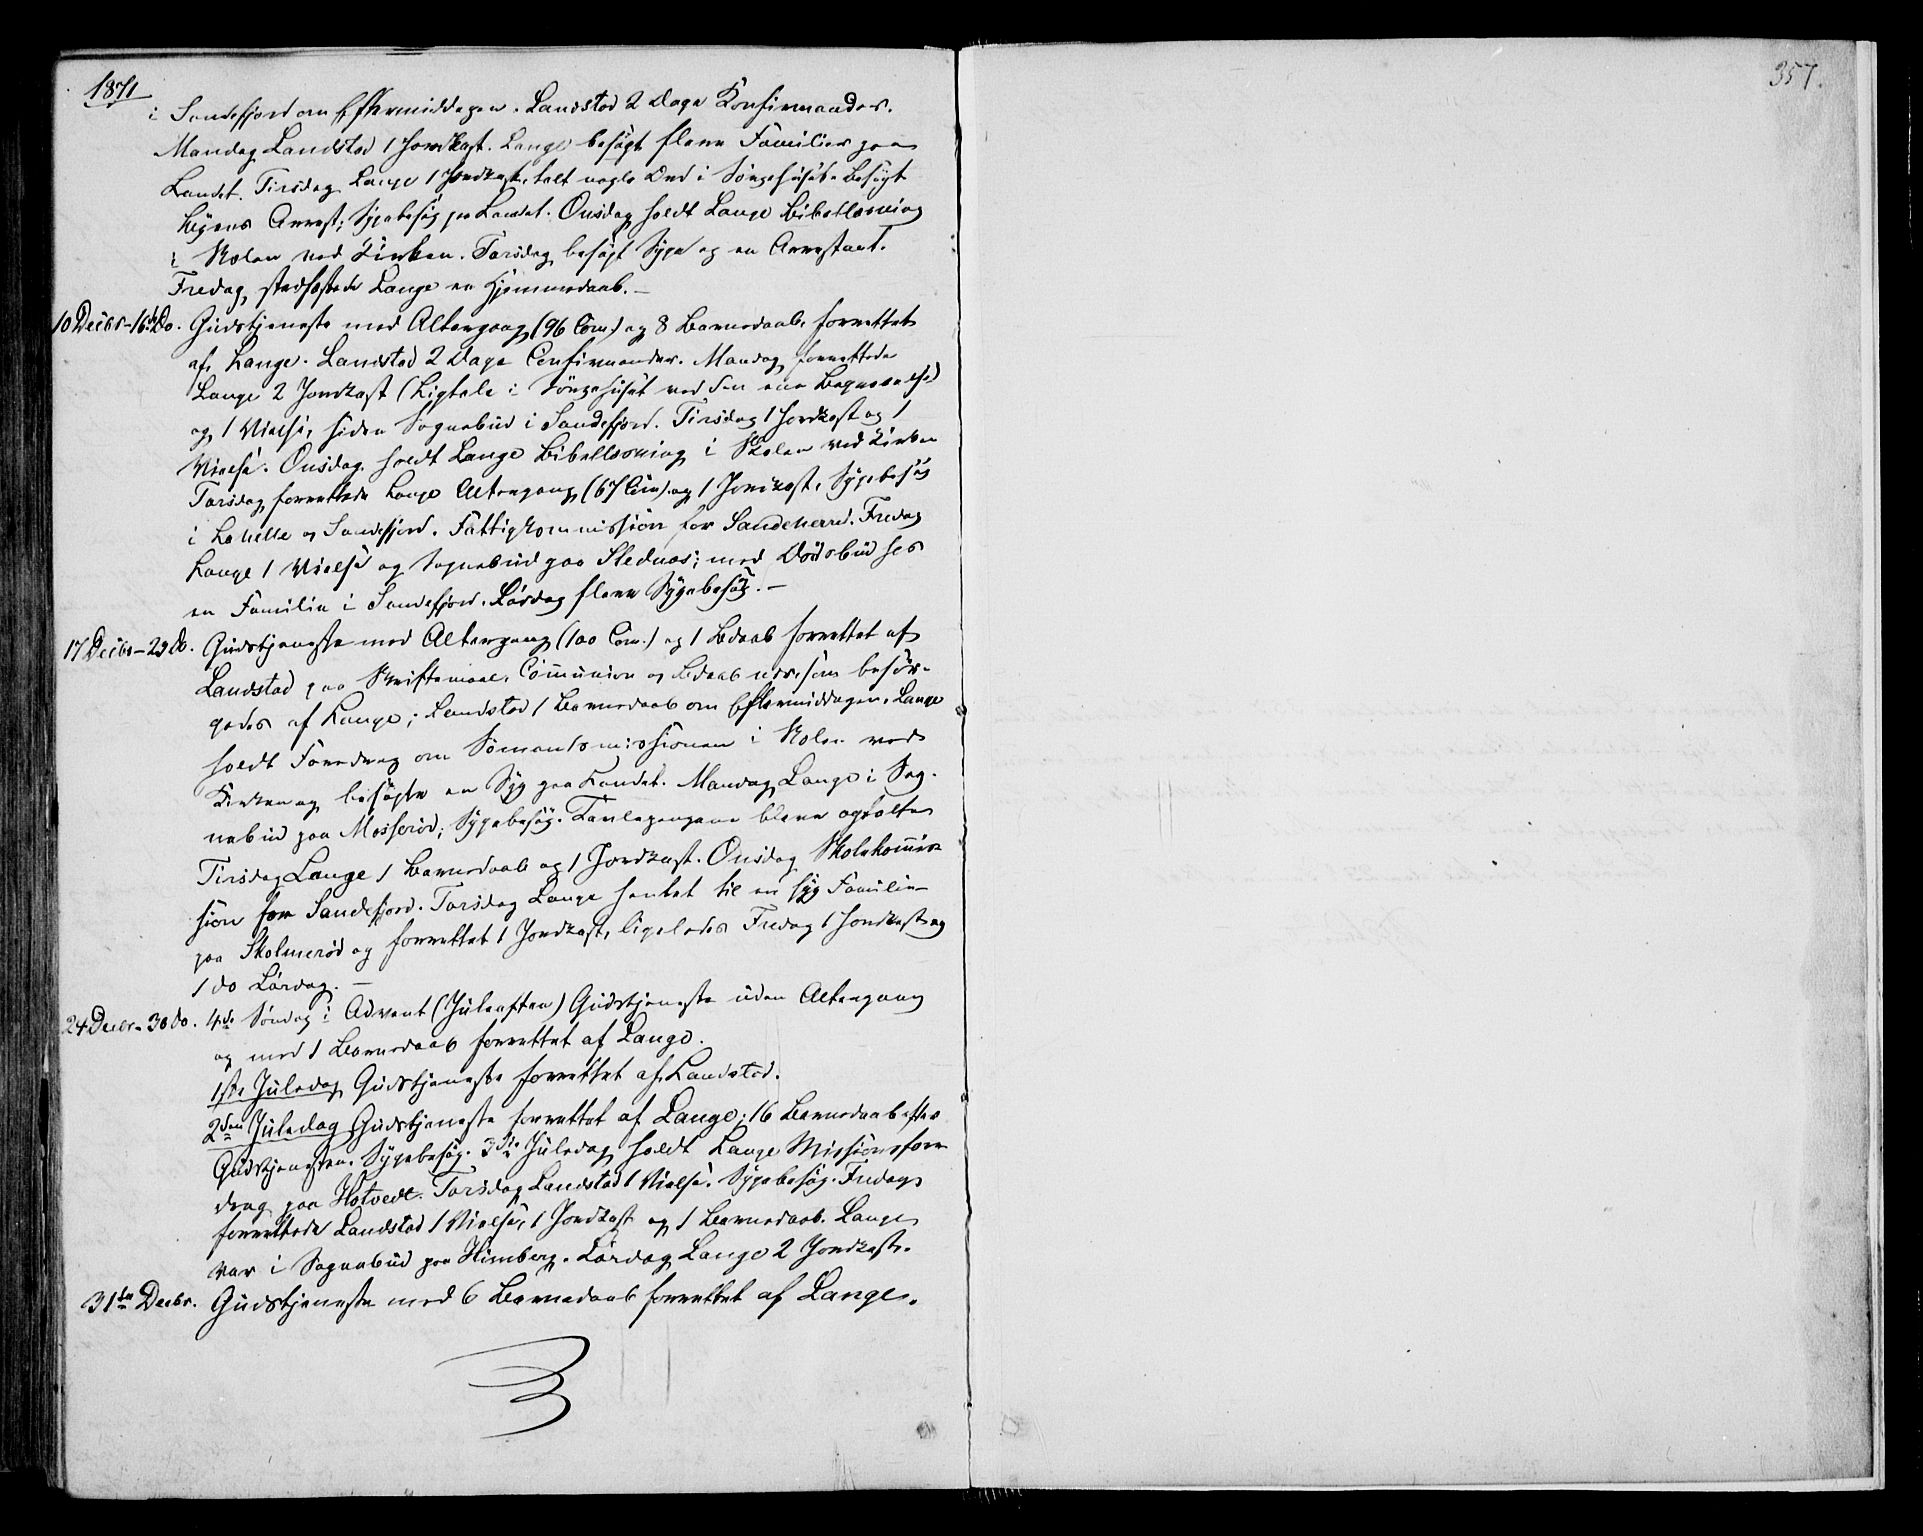 1871
i Sandefjord om Eftermiddagen. Landstad 2 Dage Konfirmander.
Mandag Landstad 1 Jordkast. Lange besøgt flere Familier paa
Landet. Tirsdag Lange 1 Jordkast, talt nogle Ord i Sørgehuset. Besøgt
Byens Arrest; Sygebesøg paa Landet. Onsdag holdt Lange Bibellæsning
i Skolen ved Kirken. Torsdag besøgt Syge og en Arrestant.
Fredag stadfæstede Lange en Hjemmedaab. —
10 Decbr - 16de Do. Gudstjeneste med Altergang (96 Com.) og 8 Barnedaab, forrettet
af Lange. Landstad 2 Dage Confirmander. Mandag forrettede
Lange 2 Jordkast (Ligtale i Sørgehuset ved den ene Begravelse)
og 1 Vielse, siden Sognebud i Sandefjord. Tirsdag 1 Jordkast og 1
Vielse. Onsdag holdt Lange Bibellæsning i Skolen ved Kirken
Torsdag forrettede Lange Altergang (67 Com.) og 1 Jordkast, Sygebesøg
i Lahelle og Sandefjord. Fattigkommission for Sandeherred. Fredag
Lange 1 Vielse og Sognebud paa Slednæs; med Dødsbud hos
en Familie i Sandefjord. Lørdag flere Sygebesøg. —
17 Decbr - 23 Do. Gudstjeneste med Altergang (100 Com.) og 1 Bdaab forrettet af
Landstad paa Skriftemaal, Communion og Bdaab nær, som besør-
gedes af Lange; Landstad 1 Barnedaab om Eftermiddagen. Lange
holdt Foredrag om Sømandsmissionen i Skolen ved
Kirken og besøgte en Syg paa Landet. Mandag Lange i Sog-
nebud paa Mosserød; Sygebesøg. Tavlepengene bleve optalte
Tirsdag Lange 1 Barnedaab og 1 Jordkast. Onsdag Skolekommis-
sion for Sandefjord. Torsdag Lange hentet til en syg Familie
paa Skolmerød og forrettet 1 Jordkast, ligeledes Fredag 1 Jordkast og
1 do Lørdag. —
24 Decbr - 30 do. 4de Søndag i Advent (Juleaften) Gudstjeneste uden Altergang
og med 1 Barnedaab forrettet af Lange.
1ste Juledag Gudstjeneste forrettet af Landstad.
2den Juledag Gudstjeneste forrettet af Lange; 16 Barnedaab efter
Gudstjenesten. Sygebesøg. 3die Juledag holdt Lange Missionsfore-
drag paa Hotvedt. Torsdag Landstad 1 Vielse. Sygebesøg. Fredag
forrettede Landstad 1 Vielse, 1 Jordkast og 1 Barnedaab. Lange
var i Sognebud paa Himberg. Lørdag Lange 2 Jordkast.
31te Decbr. Gudstjeneste med 6 Barnedaab forrettet af Lange.
357.